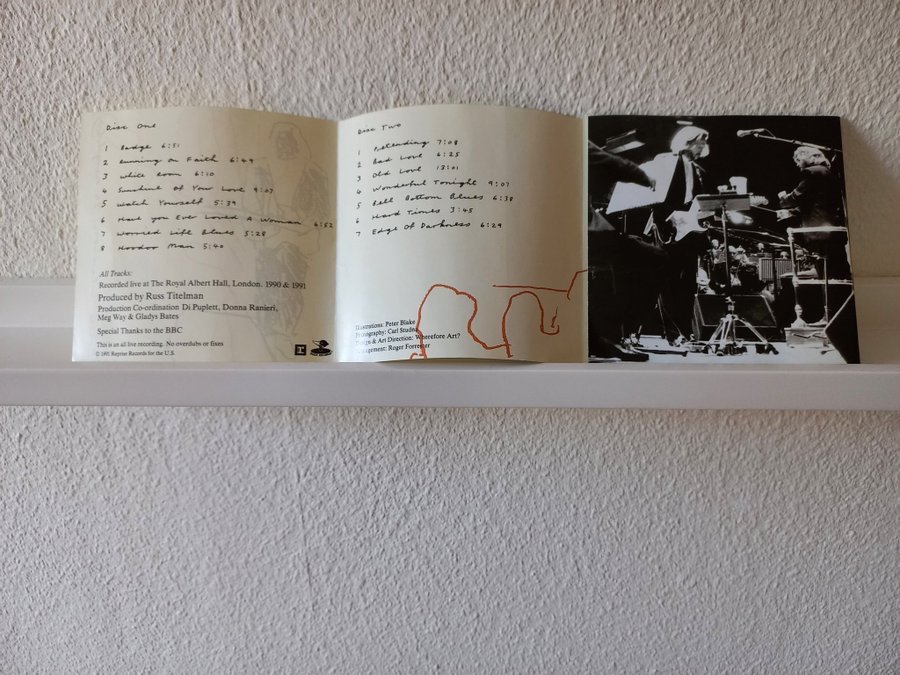 Disc One
1 Badge 6:51
2 Running on Faith 6:49
3 White Room 6:10
4 Sunshine of Your Love 9:07
5 Watch Yourself 5:39
6 Have you Ever Loved A Woman 6:52
7 Worried Life Blues 5:28
8 Hoodoo Man 5:40
All Tracks:
Recorded live at The Royal Albert Hall, London. 1990 & 1991
Produced by Russ Titelman
Production Co-ordination Di Puplett, Donna Ranieri,
Meg Way & Gladys Bates
Special Thanks to the BBC
This is an all live recording. No overdubs or fixes
© 1991 Reprise Records for the U.S.
Disc Two
1 Pretending 7:08
2 Bad Love 6:25
3 Old Love 13:01
4 Wonderful Tonight 9:07
5 Bell Bottom Blues 6:38
6 Hard Times 3:45
7 Edge Of Darkness 6:29
Illustrations: Peter Blake
Photography: Carl Studna
Design & Art Direction: Wherefore Art?
Management: Roger Forrester